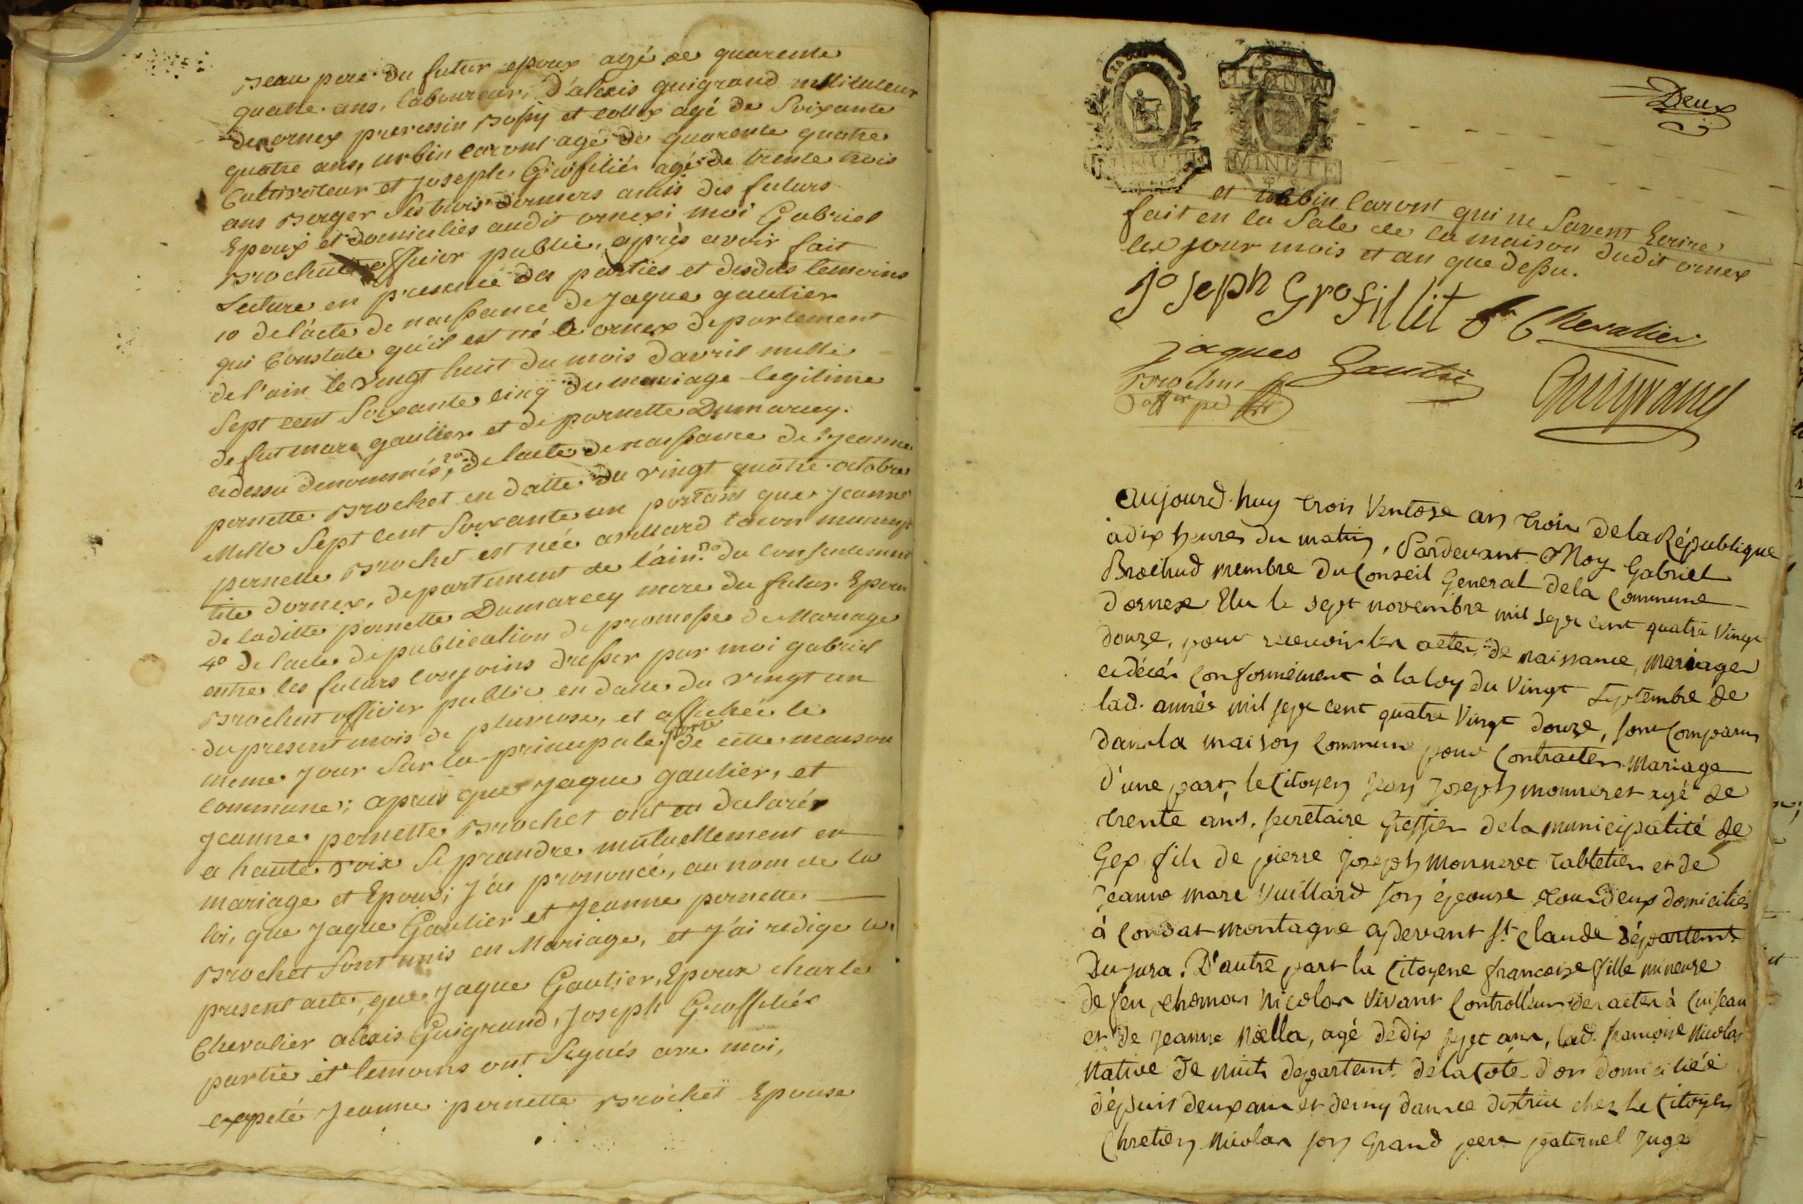 Beau pere du futur epoux agé de quarente
quatre ans, laboureur, d'alexis guigrand instituteur
dornex agé de Soixante
quatre ans, urbin caront agé de quarente quatre
Cultivateur et joseph Grosfilié agé de trente trois
ans Berger ses trois derniers amis des futurs
Epoux et domiciliés audit ornex; moi Gabriel
Brochut officier public, après avoir fait
Lecture en presence des parties et desdits temoins
1o de l'acte de naissance de jaque gautier
qui Constate qu'il est né a ornex departement
de l'ain le vingt huit du mois d'avril mille
Sept cent Soixante cinq du mariage legitime
de fut marc gautier et de pernette Dumarcey
cidessu denommés, 2o de lacte de naissance de Jeanne
pernette Brochet en datte du vingt quatre octobre
Mille Sept cent Soixante un portant que jeanne
pernette Brochet est née a
lité dornex, departement de l'ain. 3o du consentement
de laditte pernette Dumarcey mere du futur Epoux
4o de lacte de publication de promesse de Mariage
entre les futurs conjoins dresser par moi gabriel
Brochut officier public en datte du vingt un
du present mois de pluviose, et affichée le
meme jour Sur la principale porte de cette maison
commune; après que jaque gautier, et
jeanne pernette Brochet ont eu declaré
a haute voix Se prandre mutuellement en
mariage et Epoux; j'ai prononcé, au nom de la
loi, que jaque Gautier et Jeanne pernette
Brochet Sont unis en Mariage, et j'ai redigé le
present acte, que jaque Gautier, Epoux charle
Chevalier alexis Guigrand, joseph Grosfilié
partie et temoins ont Signés avec moi,
excepté Jeanne pernette Brochet Epouse
Deux
MINUTE
MINUTE
et urbin caront qui ne Savent Ecrire
fait en la Sale de la maison dudit ornex
les jour mois et an que dessu.
Joseph Grosfillit Chevalier
Jaques Gautie
Brochut
off pu
Guigrand
aujourd-huy trois Ventose an trois de la République
à dix heures du matin, Pardevant Moy Gabriel
Brochud membre du Conseil General de la Commune
d'ornex Elu le sept novembre mil sept cent quatre Vingt
douze, pour recevoir les actes de naissance, mariage
et décès Conformément à la loy du Vingt Septembre de
lad. année mil sept cent quatre Vingt douze, sont comparus
dans la maison Commune pour Contracter Mariage
d'une part, le Citoyen jean Joseph monneret agé de
trente ans, secretaire Greffier de la municipalité de
Gex fils de pierre joseph Monneret tabletier et de
jeanne mare Vuillard son épouse tou deux domiciliés
à Condat montagne cydevant St Claude département
Du jura. D'autre part la Citoyene françoise fille mineure
de feu thomas Nicolas Vivant Controlleur des actes à Cuiseau
et de jeanne Noella, agé de dix sept ans, lad. françoise Nicolas
Native de nuits departemt. de la Cote-d'or domiciliée
depuis deux ans et demy dans ce district chez le Citoyen
Chretien Nicolas son Grand pere paternel juge